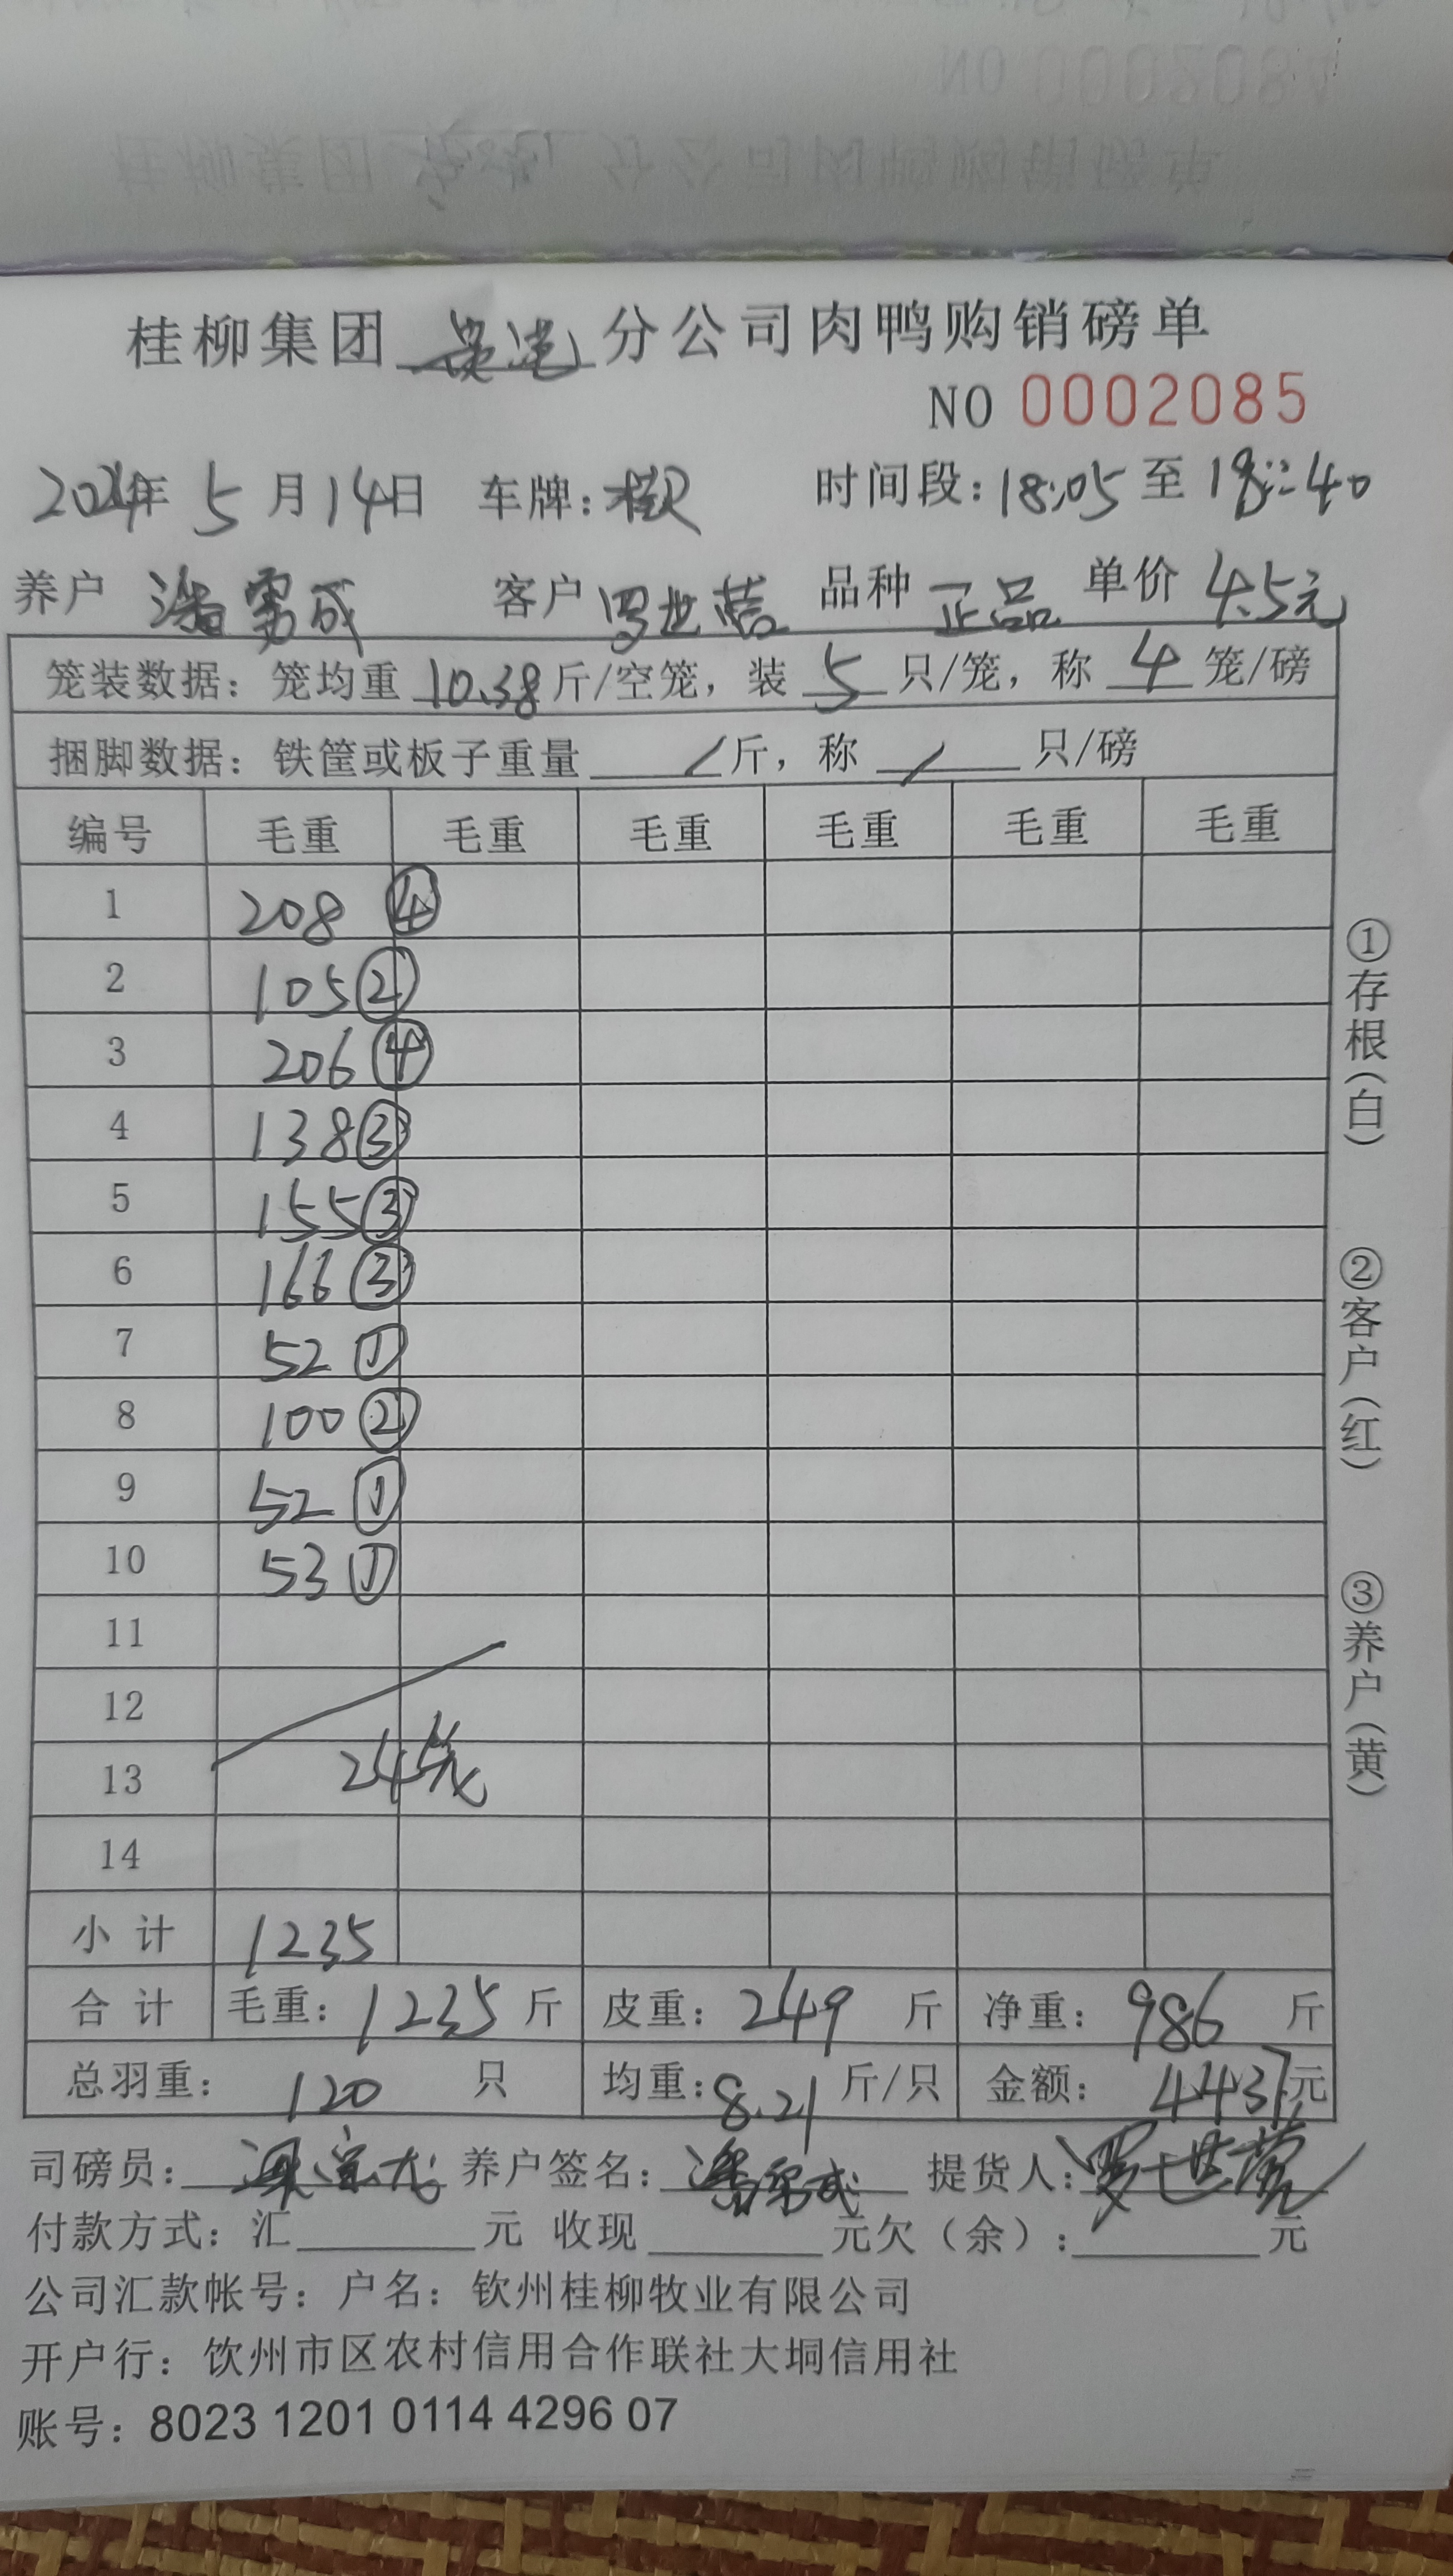 桂柳集团 分公司肉鸭购销磅单
NO 0002085
2024年 5月14日 车牌: 时间段:18:05至18:40
养户 潘雳成 客户 罗世营 品种 正品 单价 4.5元
笼装数据：笼均重 10.38 斤/空笼，装 5 只/笼，称 4 笼/磅
捆脚数据：铁筐或板子重量 / 斤，称 / 只/磅
编号 毛重 毛重 毛重 毛重 毛重 毛重
1 208 ④
2 105 ②
3 206 ④
4 138 ③
5 155 ③
6 166 ③
7 52 ①
8 100 ②
9 52 ①
10 53 ①
11
12
13 24笼
14
小计 1235
合计 毛重：1235 斤 皮重：249 斤 净重：986 斤
总羽重：120 只 均重：8.21 斤/只 金额：4437元
司磅员： 养户签名： 提货人：罗世营
付款方式：汇 元 收现 元欠（余）： 元
公司汇款帐号：户名：钦州桂柳牧业有限公司
开户行：饮州市区农村信用合作联社大垌信用社
账号：8023 1201 0114 4296 07
①存根（白）
②客户（红）
③养户（黄）